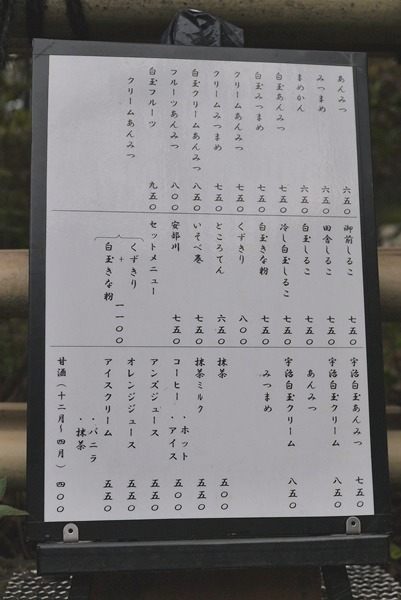 あんみつ 六五〇
みつまめ 六五〇
まめかん 六五〇
白玉あんみつ 七五〇
白玉みつまめ 七五〇
クリームあんみつ 七五〇
クリームみつまめ 七五〇
白玉クリームあんみつ 八五〇
フルーツあんみつ 八〇〇
白玉フルーツ 九五〇
クリームあんみつ
御前しるこ 七五〇
田舎しるこ 七五〇
白玉しるこ 七五〇
冷し白玉しるこ 七五〇
白玉きな粉 七五〇
くずきり 八〇〇
ところてん 六五〇
いそべ巻 七五〇
安部川 七五〇
セットメニュー
くずきり
+
白玉きな粉 一一〇〇
宇治白玉あんみつ 七五〇
宇治白玉クリーム 八五〇
あんみつ
宇治白玉クリーム 八五〇
みつまめ
抹茶 五〇〇
抹茶ミルク 五五〇
コーヒー ・ホット
・アイス 五〇〇
アンズジュース 五五〇
オレンジジュース 五五〇
アイスクリーム 五五〇
・バニラ
・抹茶
甘酒(十二月~四月) 四〇〇